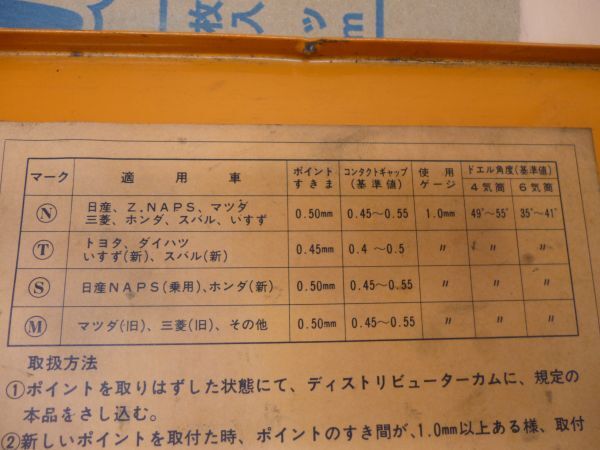 枚入
ッ
m
マーク 適用車 ポイントすきま コンタクトギャップ(基準値) 使用ゲージ ドエル角度(基準値) 4気筒 6気筒
Ⓝ 日産、Z.NAPS、マツダ 0.50mm 0.45〜0.55 1.0mm 49°〜55° 35°〜41°
三菱、ホンダ、スバル、いすず
Ⓣ トヨタ、ダイハツ 0.45mm 0.4 〜0.5 〃 〃 〃
いすず(新)、スバル(新)
Ⓢ 日産NAPS(乗用)、ホンダ(新) 0.50mm 0.45〜0.55 〃 〃 〃
Ⓜ マツダ(旧)、三菱(旧)、その他 0.50mm 0.45〜0.55 〃 〃 〃
取扱方法
①ポイントを取りはずした状態にて、ディストリビューターカムに、規定の
本品をさし込む。
②新しいポイントを取付た時、ポイントのすき間が、1.0mm以上ある様、取付